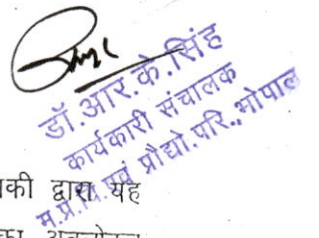 डॉ. आर. के. सिंह
कार्यकारी संचालक
म.प्र.वि. एवं प्रौद्यो. परि., भोपाल
की द्वारा यह
का अवलोकन